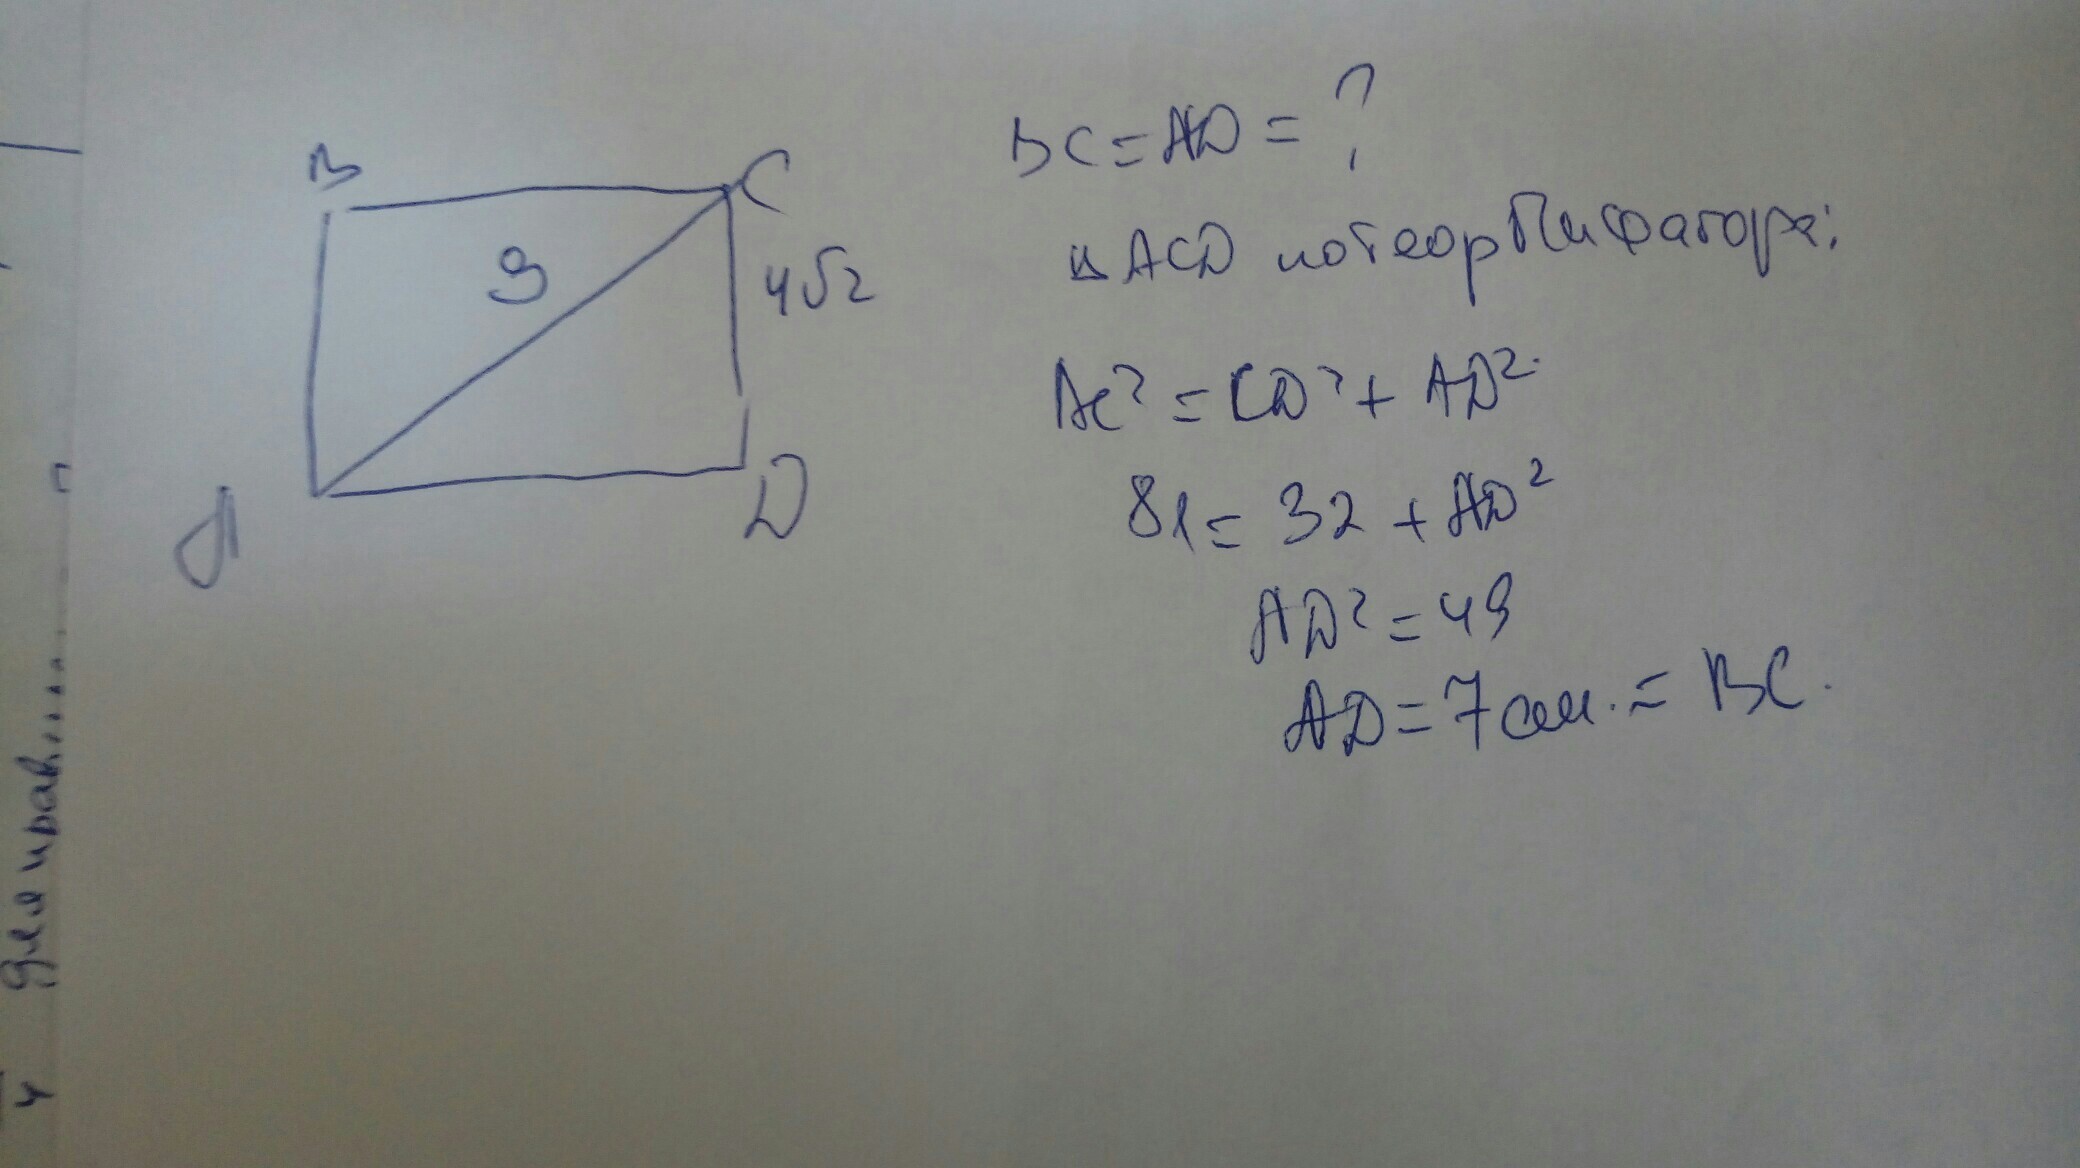 B
C
9
4√2
A
D
BC = AD = ?
△ ACD по теор Пифагора:
AC² = CD² + AD².
81 = 32 + AD²
AD² = 49
AD = 7 см. = BC.